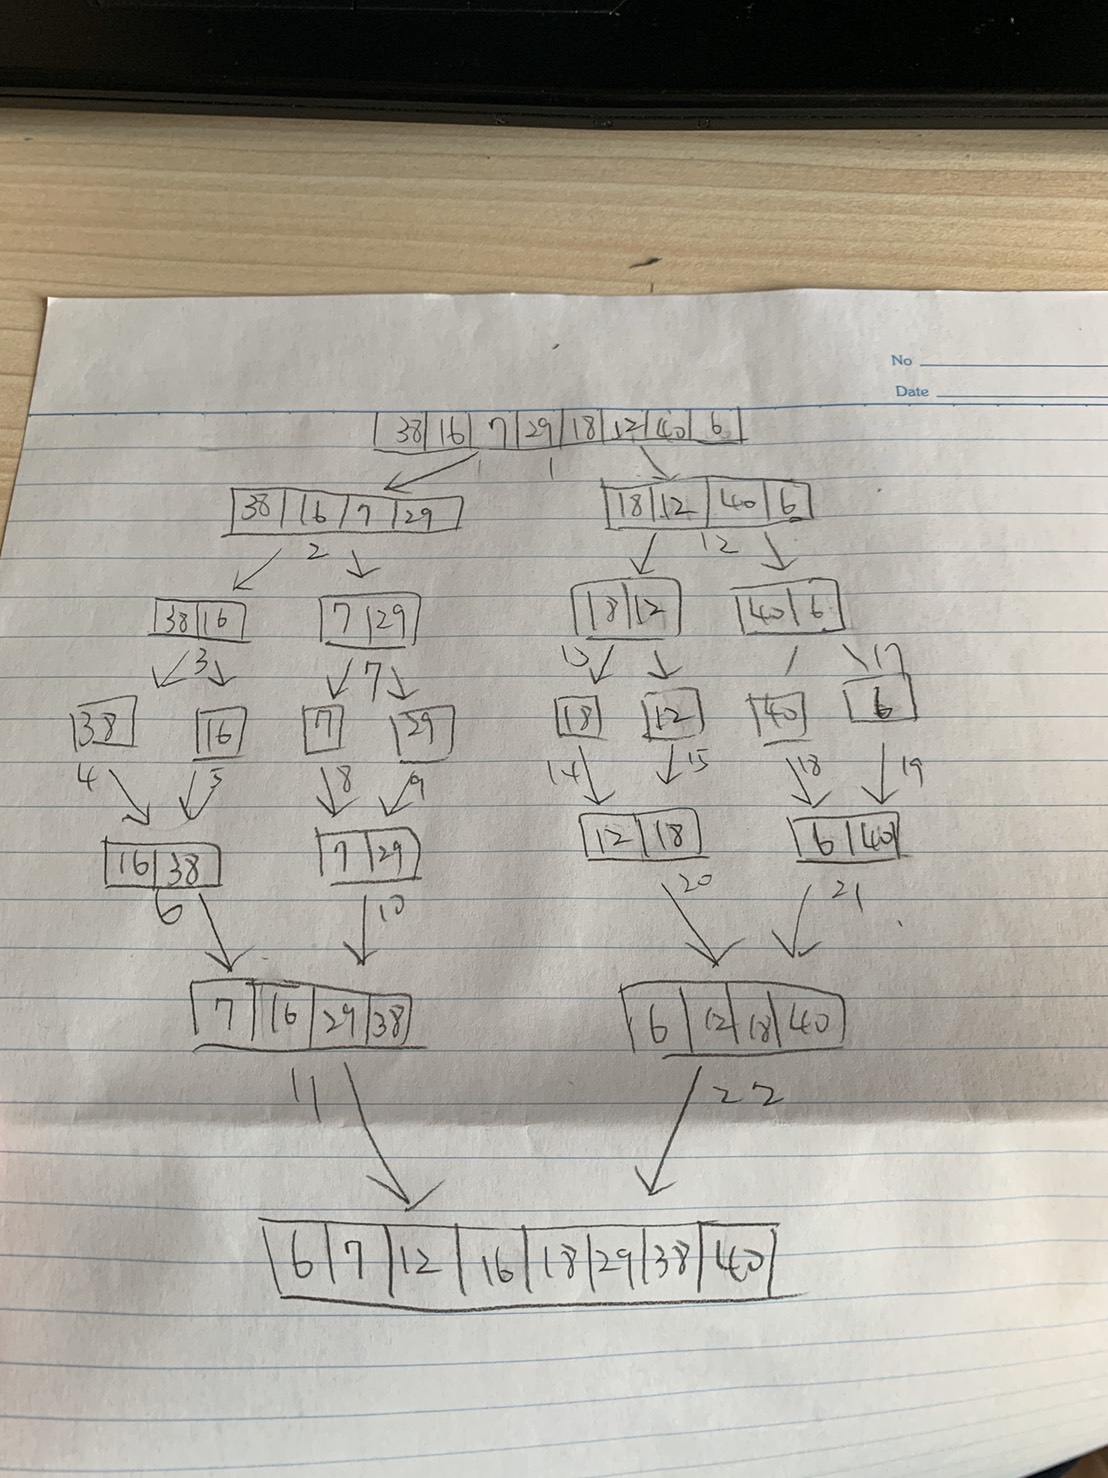 No
Date
38 16 7 29 18 12 40 6
1
38 16 7 29 18 12 40 6
2 12
38 16 7 29 18 12 40 6
3 7 13 17
38 16 7 29 18 12 40 6
4 5 8 9 14 15 18 19
16 38 7 29 12 18 6 40
6 10 20 21
7 16 29 38 6 12 18 40
11 22
6 7 12 16 18 29 38 40